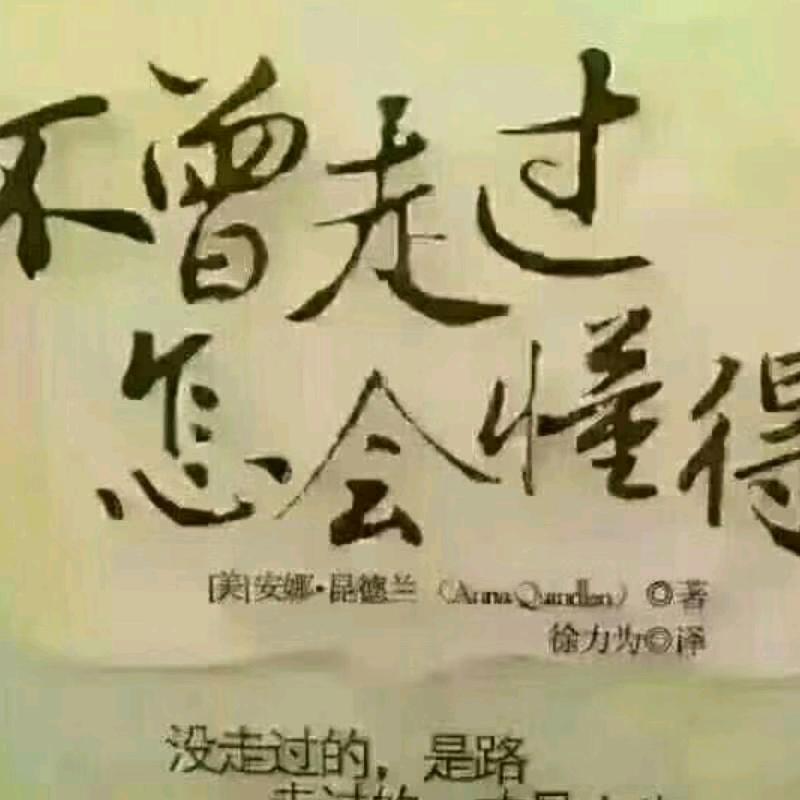 不曾走过
怎会懂得
[美]安娜·昆德兰（Anna Quindlen）◎著
徐力为◎译
没走过的，是路
走过的